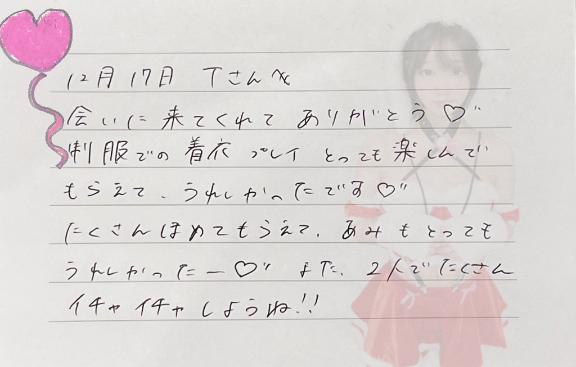 12月17日 Tさんへ
会いに来てくれてありがとう♡"
制服での着衣プレイとっても楽しんで
もらえて、うれしかったです♡"
たくさんほめてもらえて、あみもとっても
うれしかったー♡" また、2人でたくさん
イチャイチャしようね!!